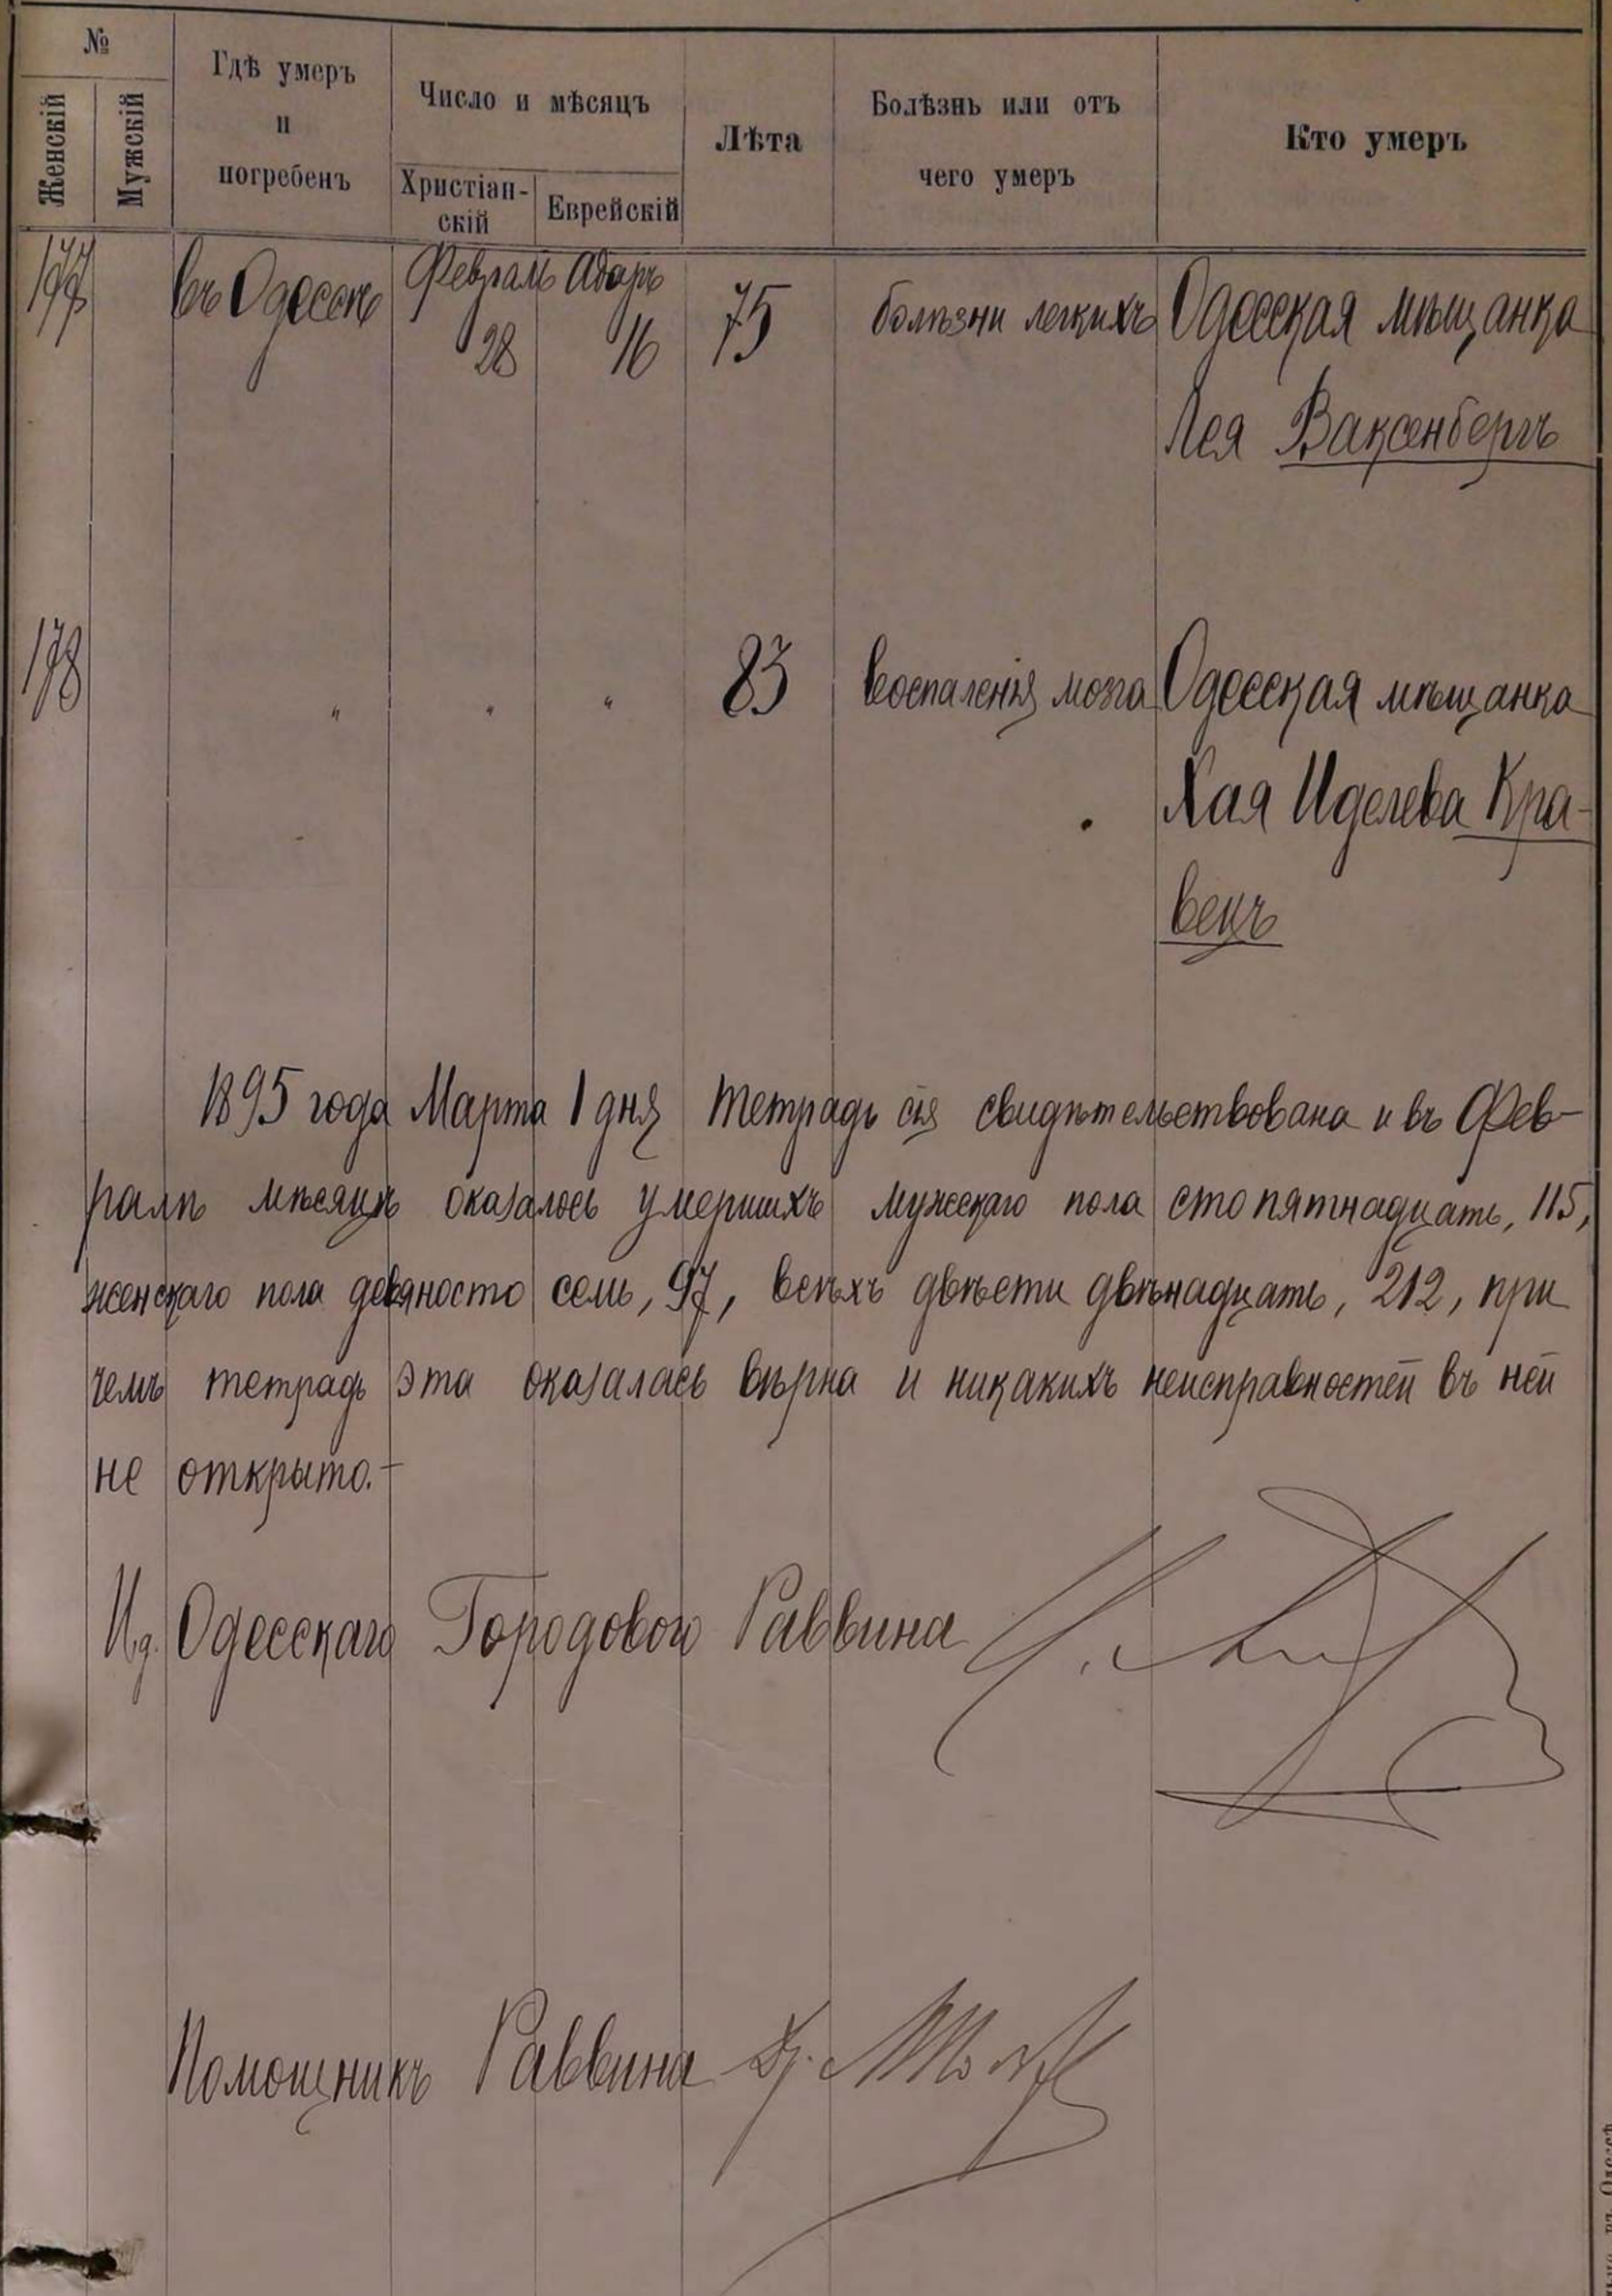 №
Женскій
Мужскій
Гдѣ умеръ
и
погребенъ
Число и мѣсяцъ
Христіан-
скій
Еврейскій
Лѣта
Болѣзнь или отъ
чего умеръ
Кто умеръ
177 въ Одессѣ Февраль 28 Адаръ 16 75 болѣзни легкихъ Одесская мѣщанка
Лея Ваксенбергъ
178 " " " 83 воспаленія мозга Одесская мѣщанка
Хая Иделева Кра-
вецъ
1895 года Марта 1 дня тетрадь сія свидѣтельствована и въ Фев-
ралѣ мѣсяцѣ оказалось умершихъ мужскаго пола сто пятнадцать, 115,
женскаго пола девяносто семь, 97, всѣхъ двѣсти двѣнадцать, 212, при
чемъ тетрадь эта оказалась вѣрна и никакихъ неисправностей въ ней
не открыто.-
И.д. Одесскаго Городового Раввина
Помощникъ Раввина